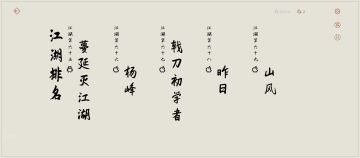 江湖排名
江湖第六十五
蔓延灭江湖
江湖第六十六
杨峰
江湖第六十七
戟刀初学者
江湖第六十八
昨日
江湖第六十九
山风